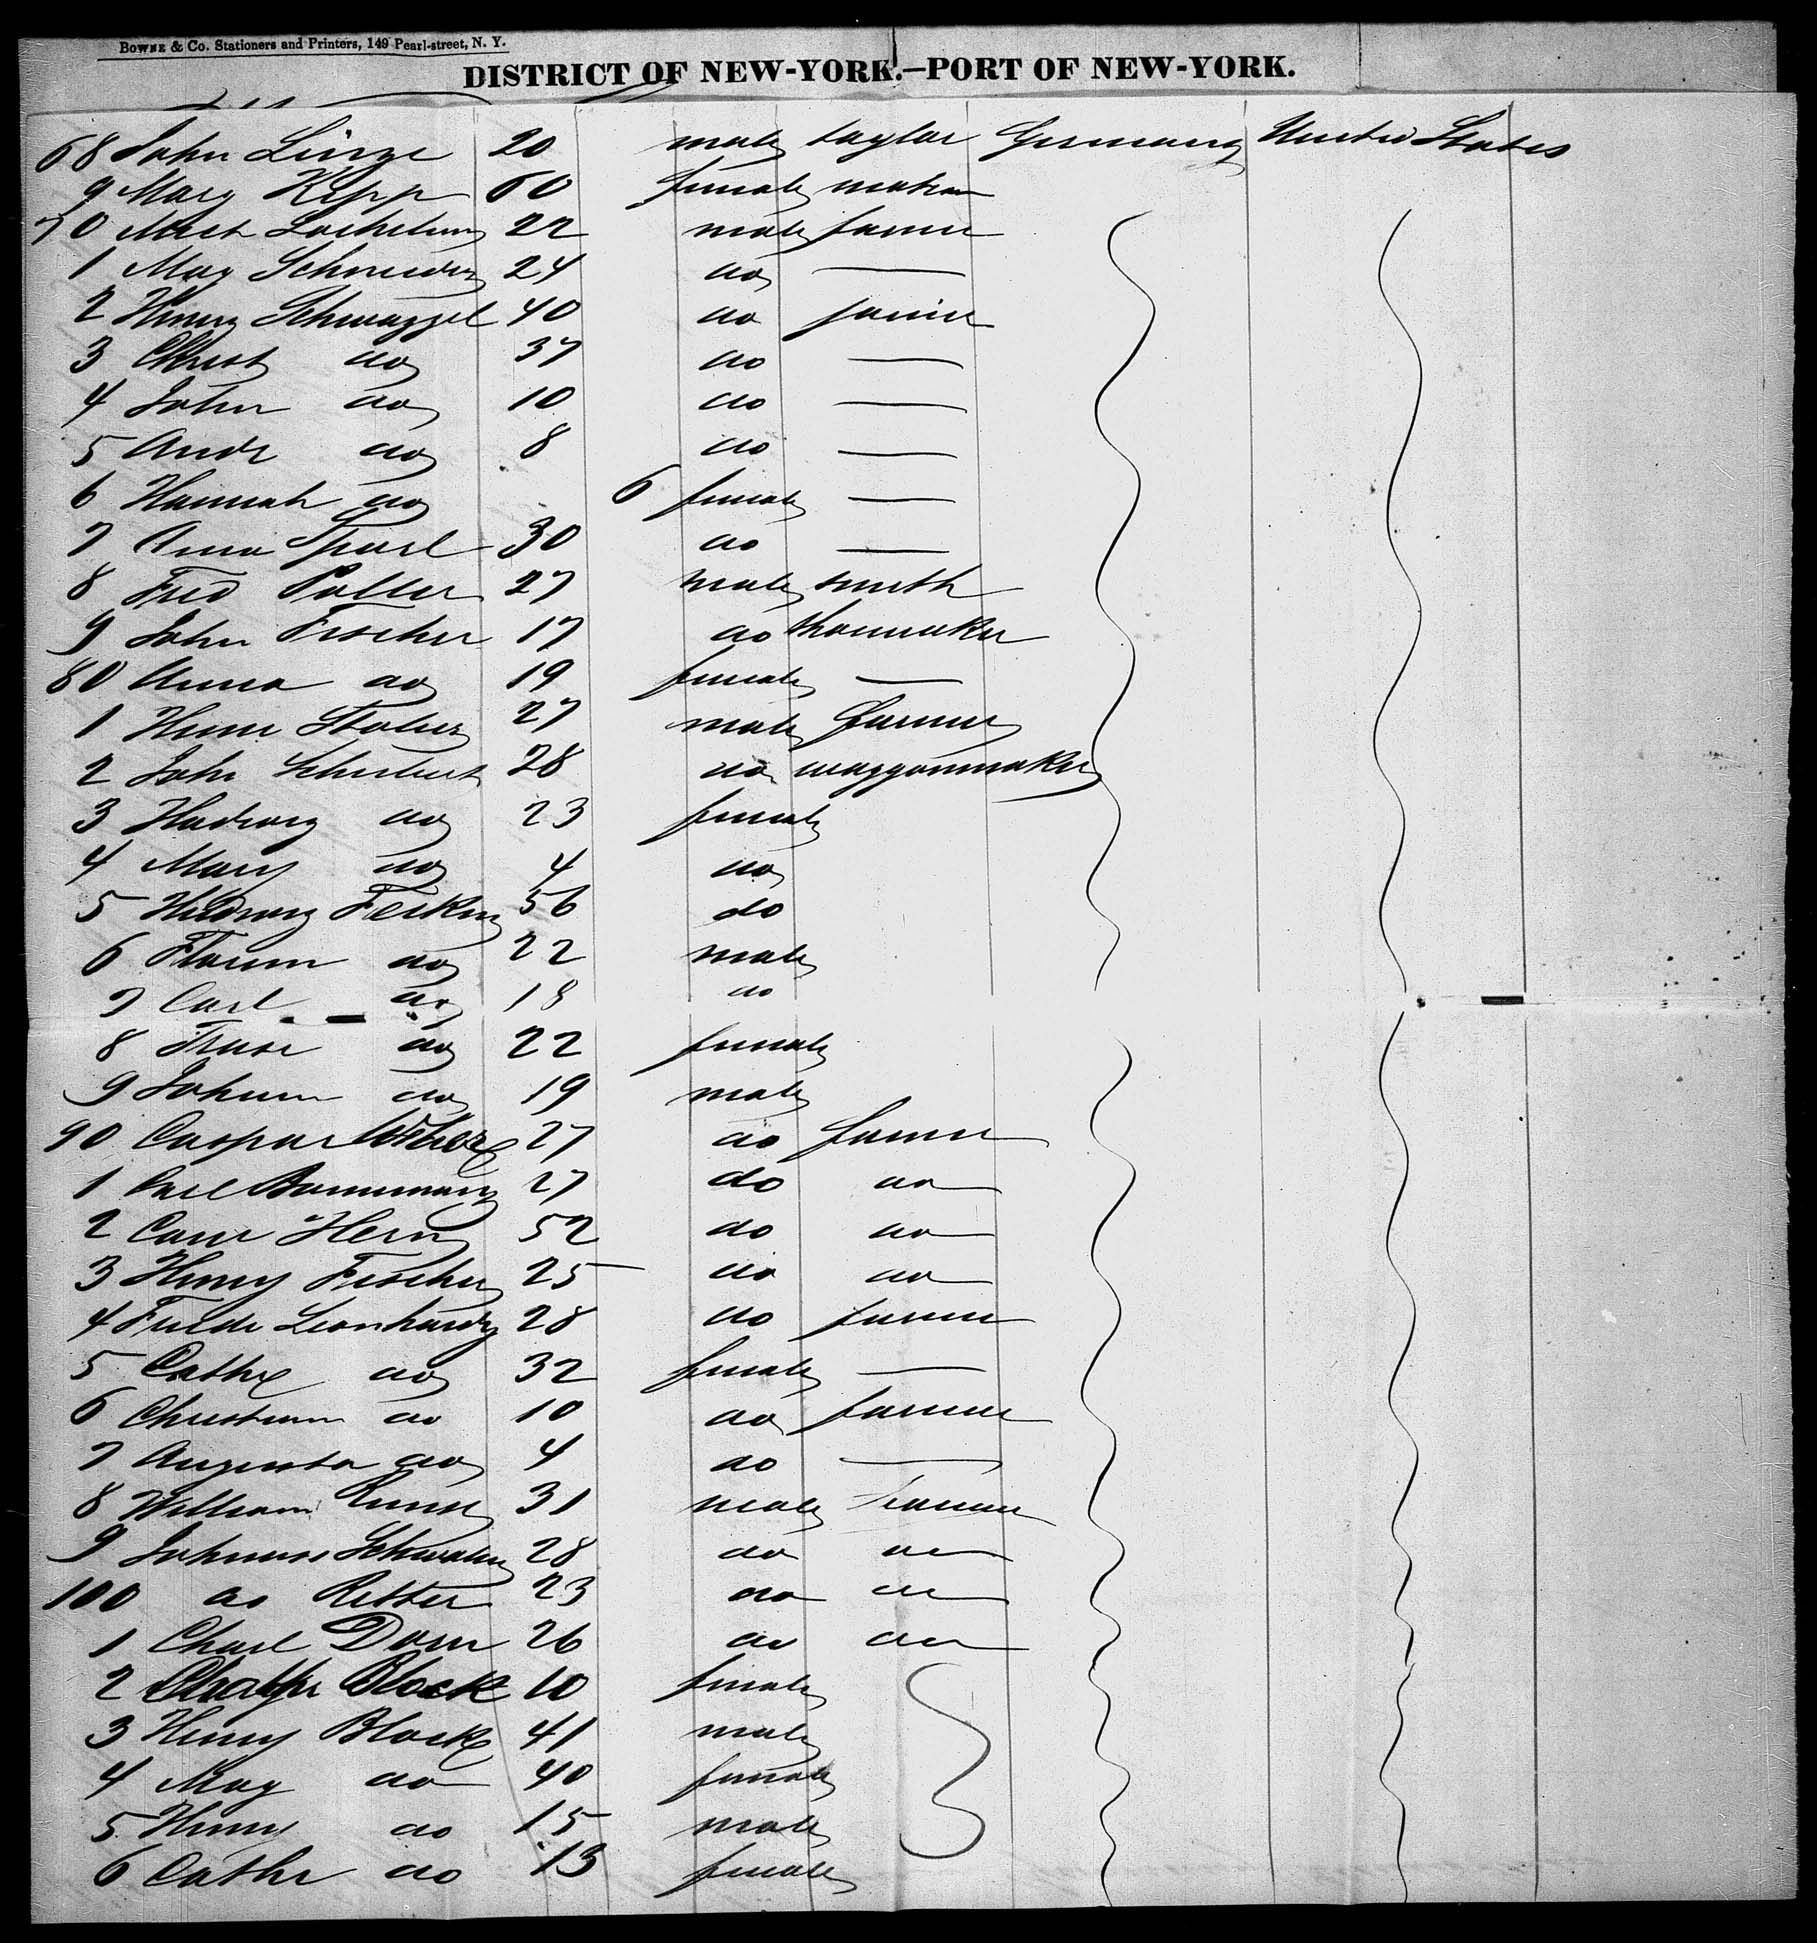 BOWNE & Co. Stationers and Printers, 149 Pearl-street, N. Y.
DISTRICT OF NEW-YORK.—PORT OF NEW-YORK.
68 John 20 male taylor Germany United States
9 Mary Kipp 60 female
70 22 male farmer
1 May Schneider 24 do —
2 Henry Schwazzel 40 do farmer
3 Christ do 37 do —
4 John do 10 do —
5 Andr do 8 do —
6 Hannah do 6 female —
7 Anna 30 do —
8 Fred Poller 27 male smith
9 John Fischer 17 do shoemaker
80 Anna do 19 female —
1 27 male farmer
2 John Schubert 28 do waggonmaker
3 do 23 female
4 Mary do 4 do
5 Hedwig 56 do
6 do 22 male
7 Carl do 18 do
8 do 22 female
9 Johann do 19 male
90 Caspar 27 do farmer
1 Carl 27 do do
2 52 do do
3 Henry Fischer 25 do do
4 Leonhardy 28 do farmer
5 Cathe do 32 female —
6 Christian do 10 do farmer
7 Augusta do 4 do —
8 William 31 male farmer
9 Johannes 28 do do
100 do Ritter 23 do do
1 Charl Dorn 26 do do
2 Block 10 female
3 Henry Block 41 male
4 May do 40 female
5 Henry do 15 male
6 Cathr do 13 female